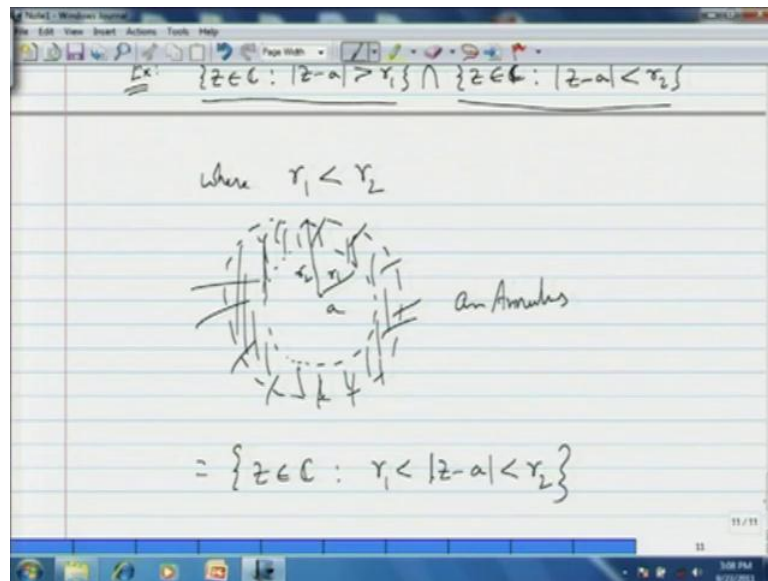 Note1 - Windows Journal
File Edit View Insert Actions Tools Help
Page Width
Ex: {z∈ℂ : |z-a| > r₁} ∩ {z∈ℂ : |z-a| < r₂}
where r₁ < r₂
r₂ r₁
a
an Annulus
= {z∈ℂ : r₁ < |z-a| < r₂}
11/11
11
3:08 PM